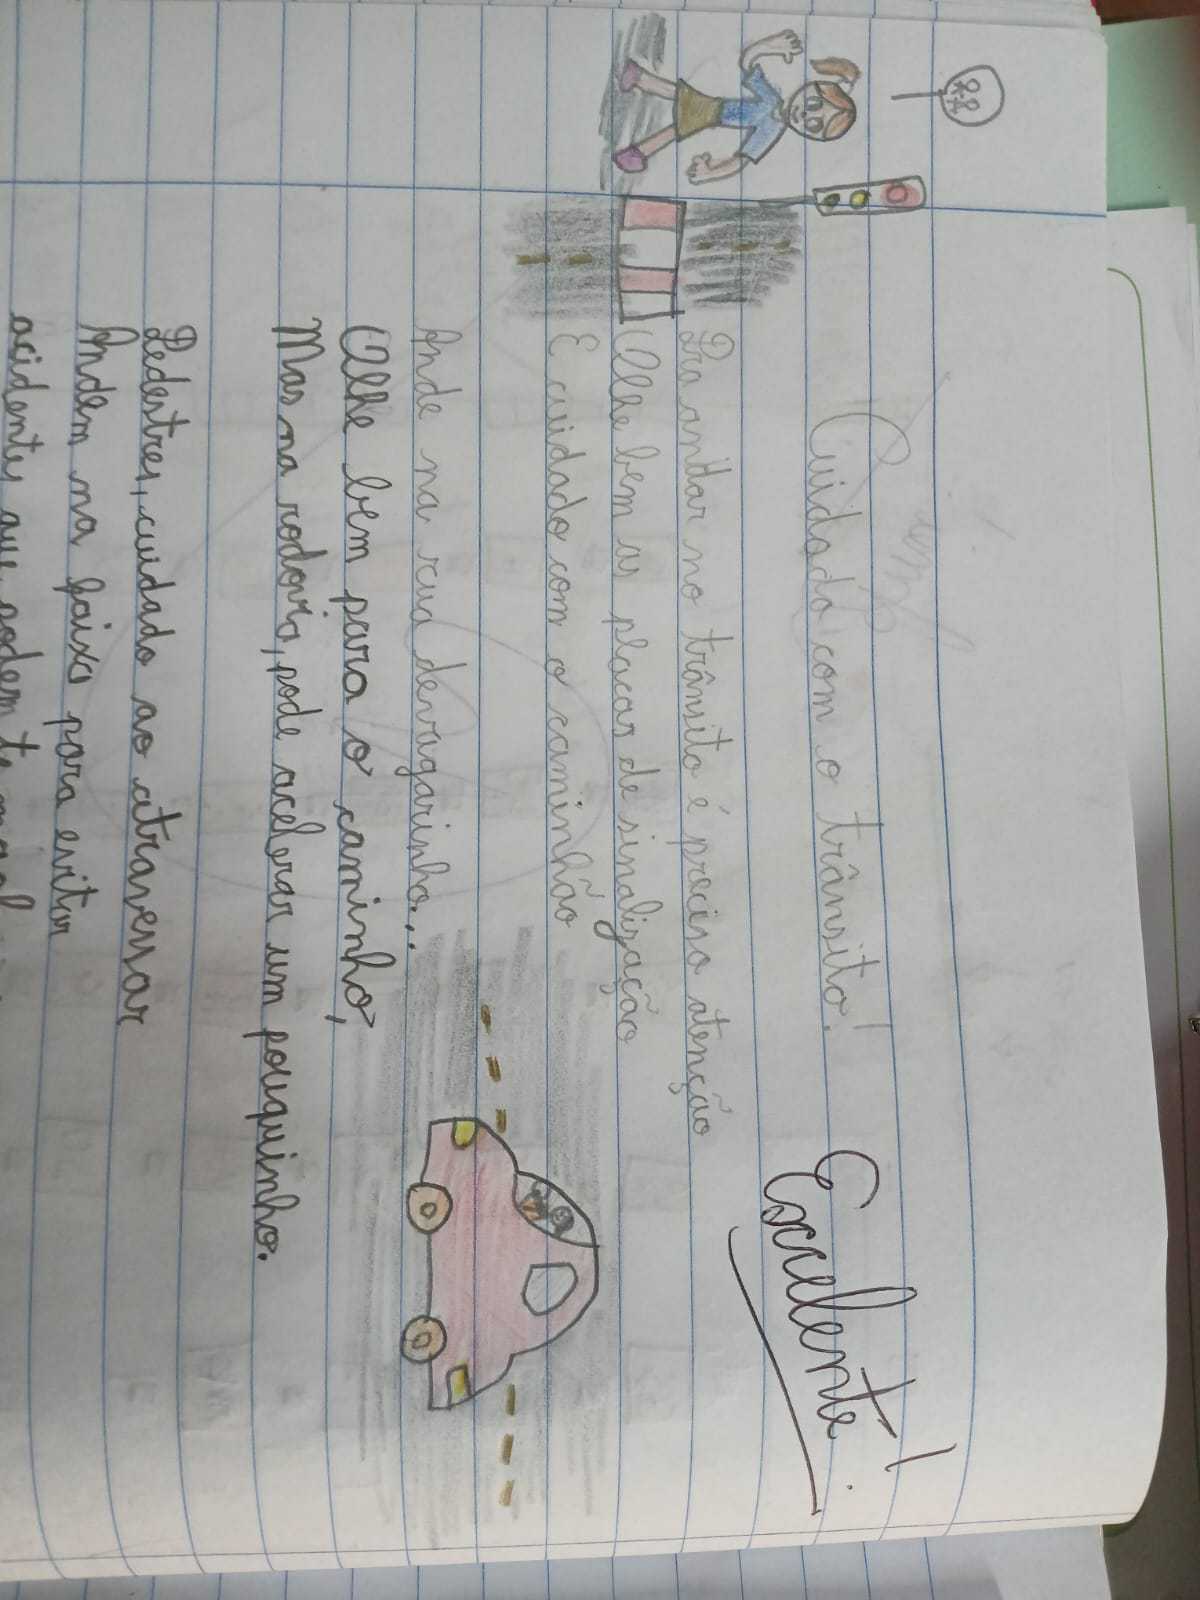 Excelente!
Cuidado com o trânsito!
Pra andar no trânsito é preciso atenção
Olhe bem as placas de sinalização
E cuidado com o caminhão
Ande na rua devagarinho...
Olhe bem para o caminho,
Mas na rodovia, pode acelerar um pouquinho.
Pedestres, cuidado ao atravessar
Andem na faixa para evitar
acidentes que podem te